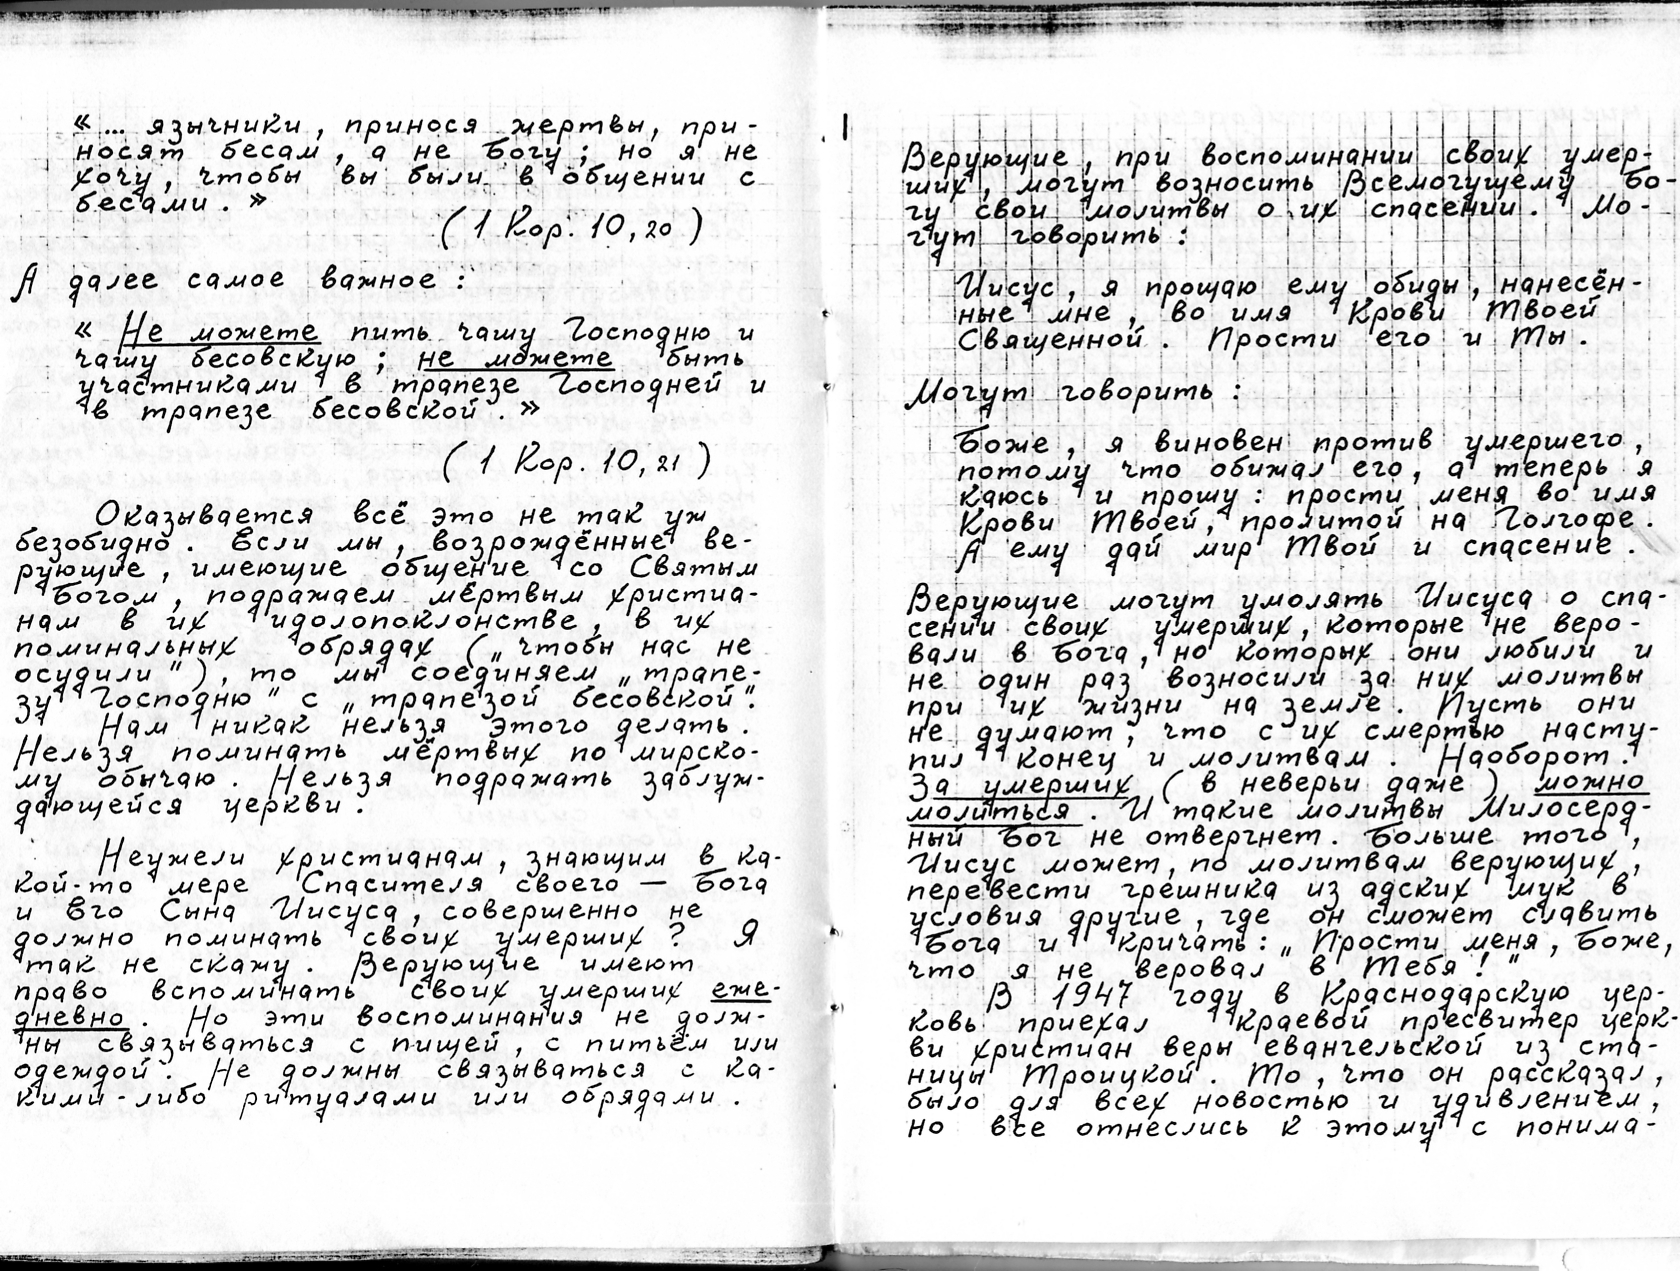 « ... язычники, принося жертвы, при-
носят бесам, а не Богу; но я не
хочу, чтобы вы были в общении с
бесами. »
(1 Кор. 10,20)
А далее самое важное:
« Не можете пить чашу Господню и
чашу бесовскую; не можете быть
участниками в трапезе Господней и
в трапезе бесовской. »
(1 Кор. 10,21)
Оказывается всё это не так уж
безобидно. Если мы, возрождённые ве-
рующие, имеющие общение со Святым
Богом, подражаем мёртвым христиа-
нам в их идолопоклонстве, в их
поминальных обрядах („чтобы нас не
осудили"), то мы соединяем „трапе-
зу Господню" с „трапезой бесовской".
Нам никак нельзя этого делать.
Нельзя поминать мёртвых по мирско-
му обычаю. Нельзя подражать заблуж-
дающейся церкви.
Неужели христианам, знающим в ка-
кой-то мере Спасителя своего — Бога
и Его Сына Иисуса, совершенно не
должно поминать своих умерших? Я
так не скажу. Верующие имеют
право вспоминать своих умерших еже-
дневно. Но эти воспоминания не долж-
ны связываться с пищей, с питьём или
одеждой. Не должны связываться с ка-
кими-либо ритуалами или обрядами.
Верующие, при воспоминании своих умер-
ших, могут возносить Всемогущему Бо-
гу свои молитвы о их спасении. Мо-
гут говорить:
Иисус, я прощаю ему обиды, нанесён-
ные мне, во имя Крови Твоей
Священной. Прости его и Ты.
Могут говорить:
Боже, я виновен против умершего,
потому что обижал его, а теперь я
каюсь и прошу: прости меня во имя
Крови Твоей, пролитой на Голгофе.
А ему дай мир Твой и спасение.
Верующие могут умолять Иисуса о спа-
сении своих умерших, которые не веро-
вали в Бога, но которых они любили и
не один раз возносили за них молитвы
при их жизни на земле. Пусть они
не думают, что с их смертью насту-
пил конец и молитвам. Наоборот.
За умерших (в неверьи даже) можно
молиться. И такие молитвы Милосерд-
ный Бог не отвергнет. Больше того,
Иисус может, по молитвам верующих,
перевести грешника из адских мук в
условия другие, где он сможет славить
Бога и кричать: „Прости меня, Боже,
что я не веровал в Тебя!"
В 1947 году в Краснодарскую цер-
ковь приехал краевой пресвитер церк-
ви христиан веры евангельской из ста-
ницы Троицкой. То, что он рассказал,
было для всех новостью и удивлением,
но все отнеслись к этому с понима-